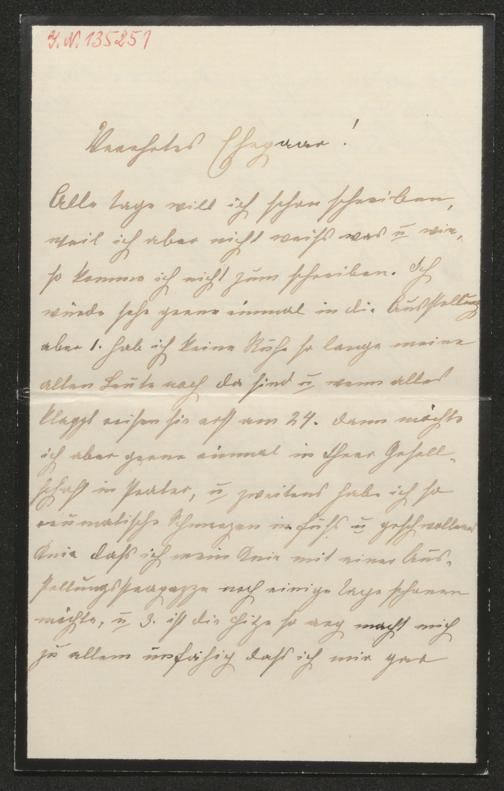 J. N. 135251
Verehrtes Ehepaar!
Alle Tage will ich schon schreiben,
weil ich aber nicht weiß was u wie,
so komme ich nicht zum schreiben. Ich
würde sehr gerne einmal in die Ausstellung
aber 1. hab ich keine Ruhe so lange meine
alten Leute noch da sind u wenn alles
klappt reisen sie erst am 24. dann möchte
ich aber gerne einmal in Ihrer Gesell-
schaft in Prater, u zweitens habe ich so
reumatische Schmerzen im Fuß u geschwollenes
Knie daß ich mein Knie mit einer Aus-
stellungsstrapazze noch einige Tage schonen
möchte, u 3. ist die Hitze so arg macht mich
zu allem unfähig daß ich mir gar